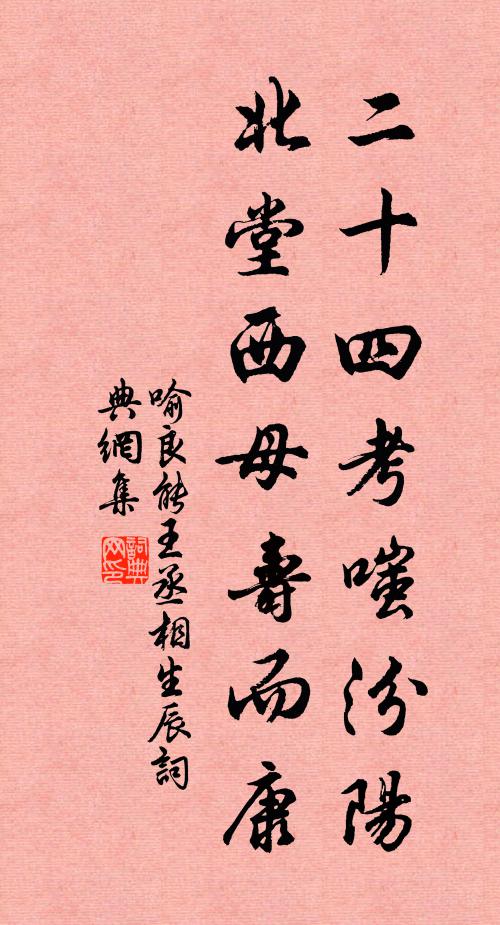 二十四考嗤汾陽
北堂西母壽而康
喻良能王丞相生辰詞
典網集
詞典網印